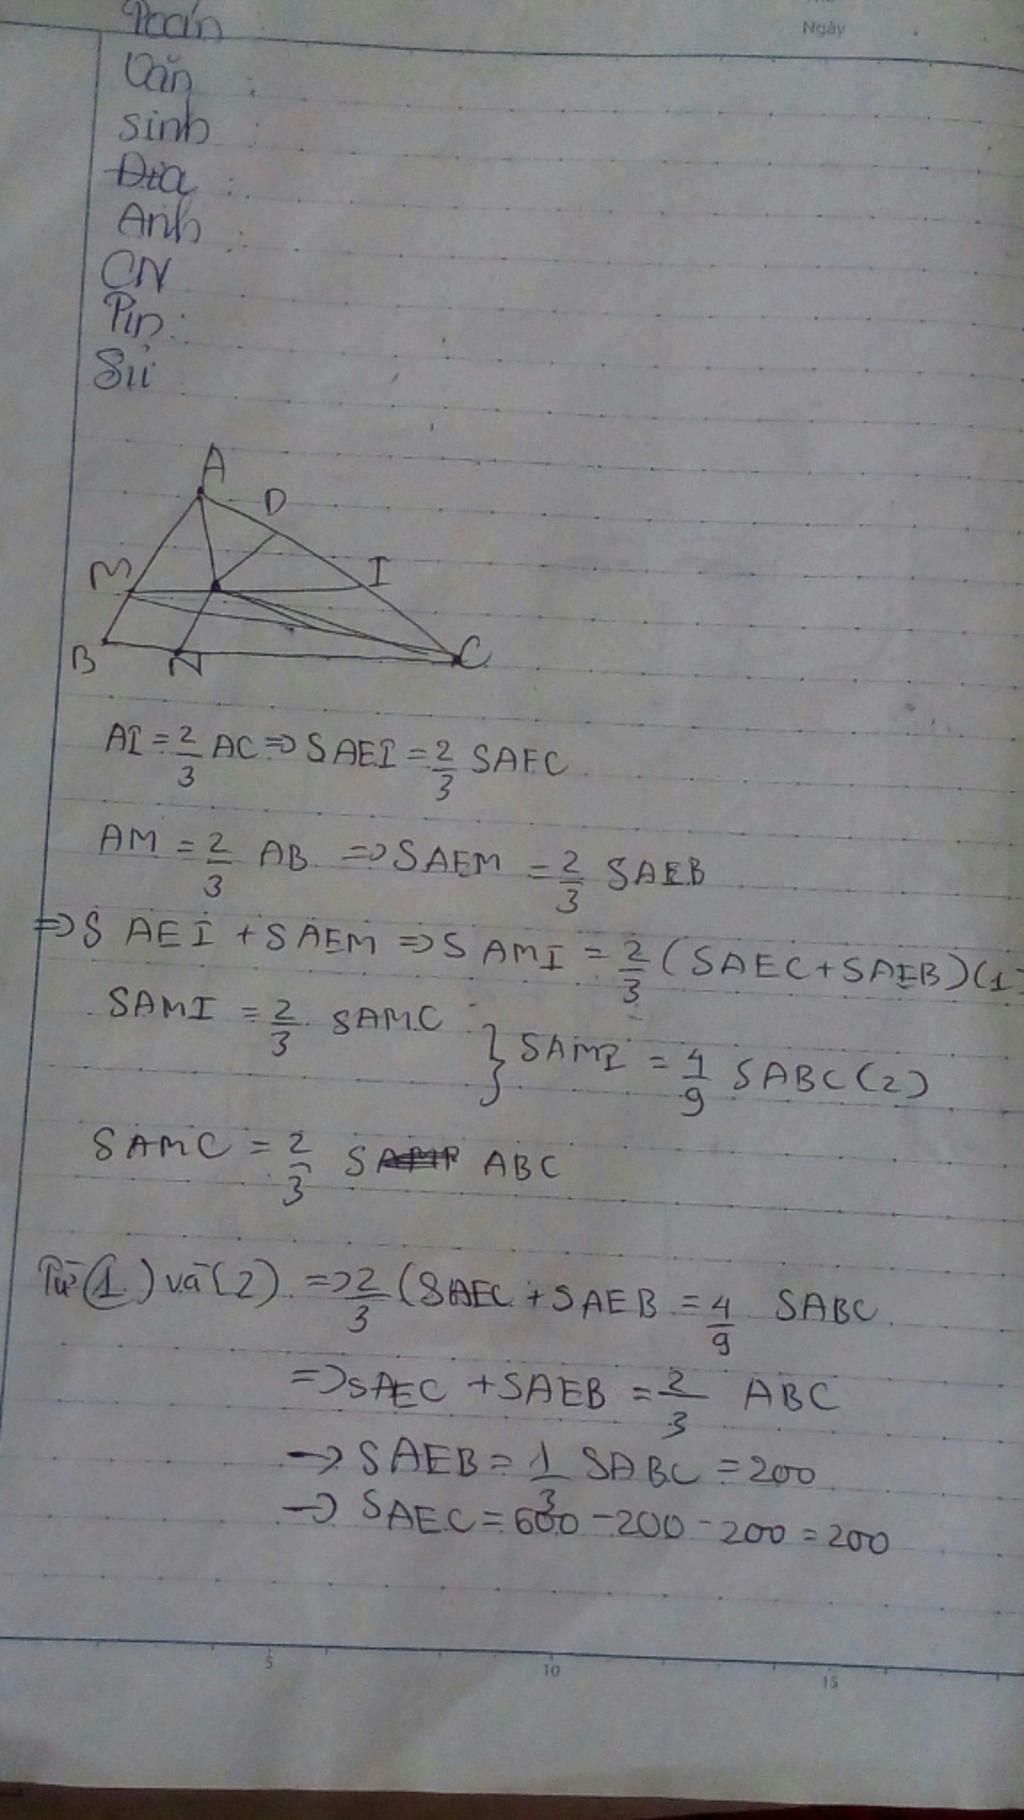 Toán
Ngày
Văn :
Sinh :
Địa :
Anh :
CN
Pin :
Sử
A
D
M
I
B
N
C
AI = 2/3 AC => SAEI = 2/3 SAEC
AM = 2/3 AB => SAEM = 2/3 SAEB
=> S AEI + SAEM => S AMI = 2/3 (SAEC + SAEB) (1)
SAMI = 2/3 SAMC
} SAMI = 4/9 SABC (2)
SAMC = 2/3 S ABC
Từ (1) và (2) => 2/3 (SAEC + SAEB = 4/9 SABC
=> SAEC + SAEB = 2/3 ABC
-> SAEB = 1/3 SABC = 200
-> SAEC = 600 - 200 - 200 = 200
5 10 15